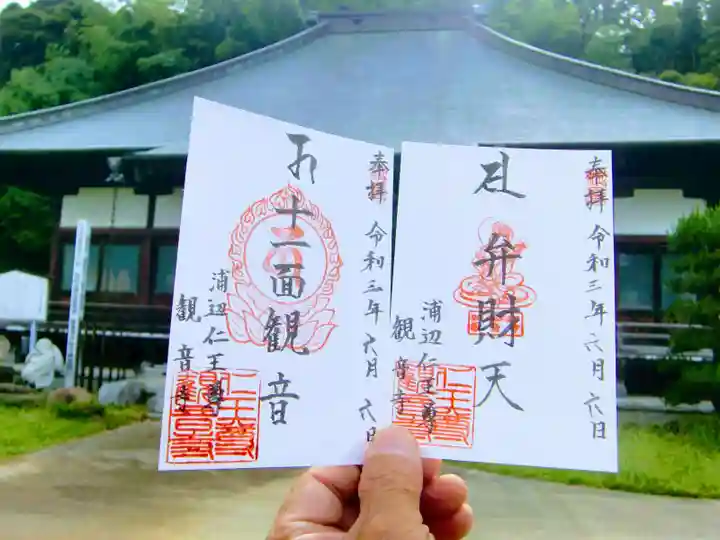 奉拝 令和三年六月六日
弁財天
浦辺仁王尊
観音寺
奉拝 令和三年六月六日
十一面観音
浦辺仁王尊
観音寺